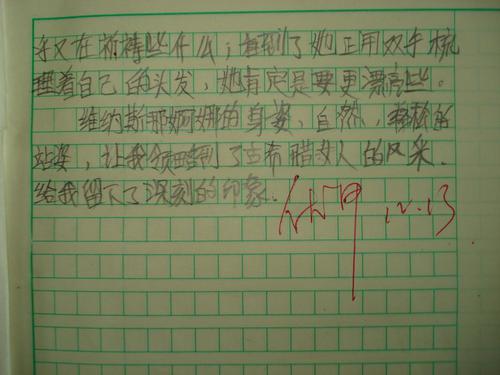 乎又在祈祷些什么；看到了她正用双手梳
理着自己的头发，她肯定是要更漂亮些。
维纳斯那婀娜的身姿、自然、的
站姿，让我领略到了古希腊女人的风采。
给我留下了深刻的印象。
12.13